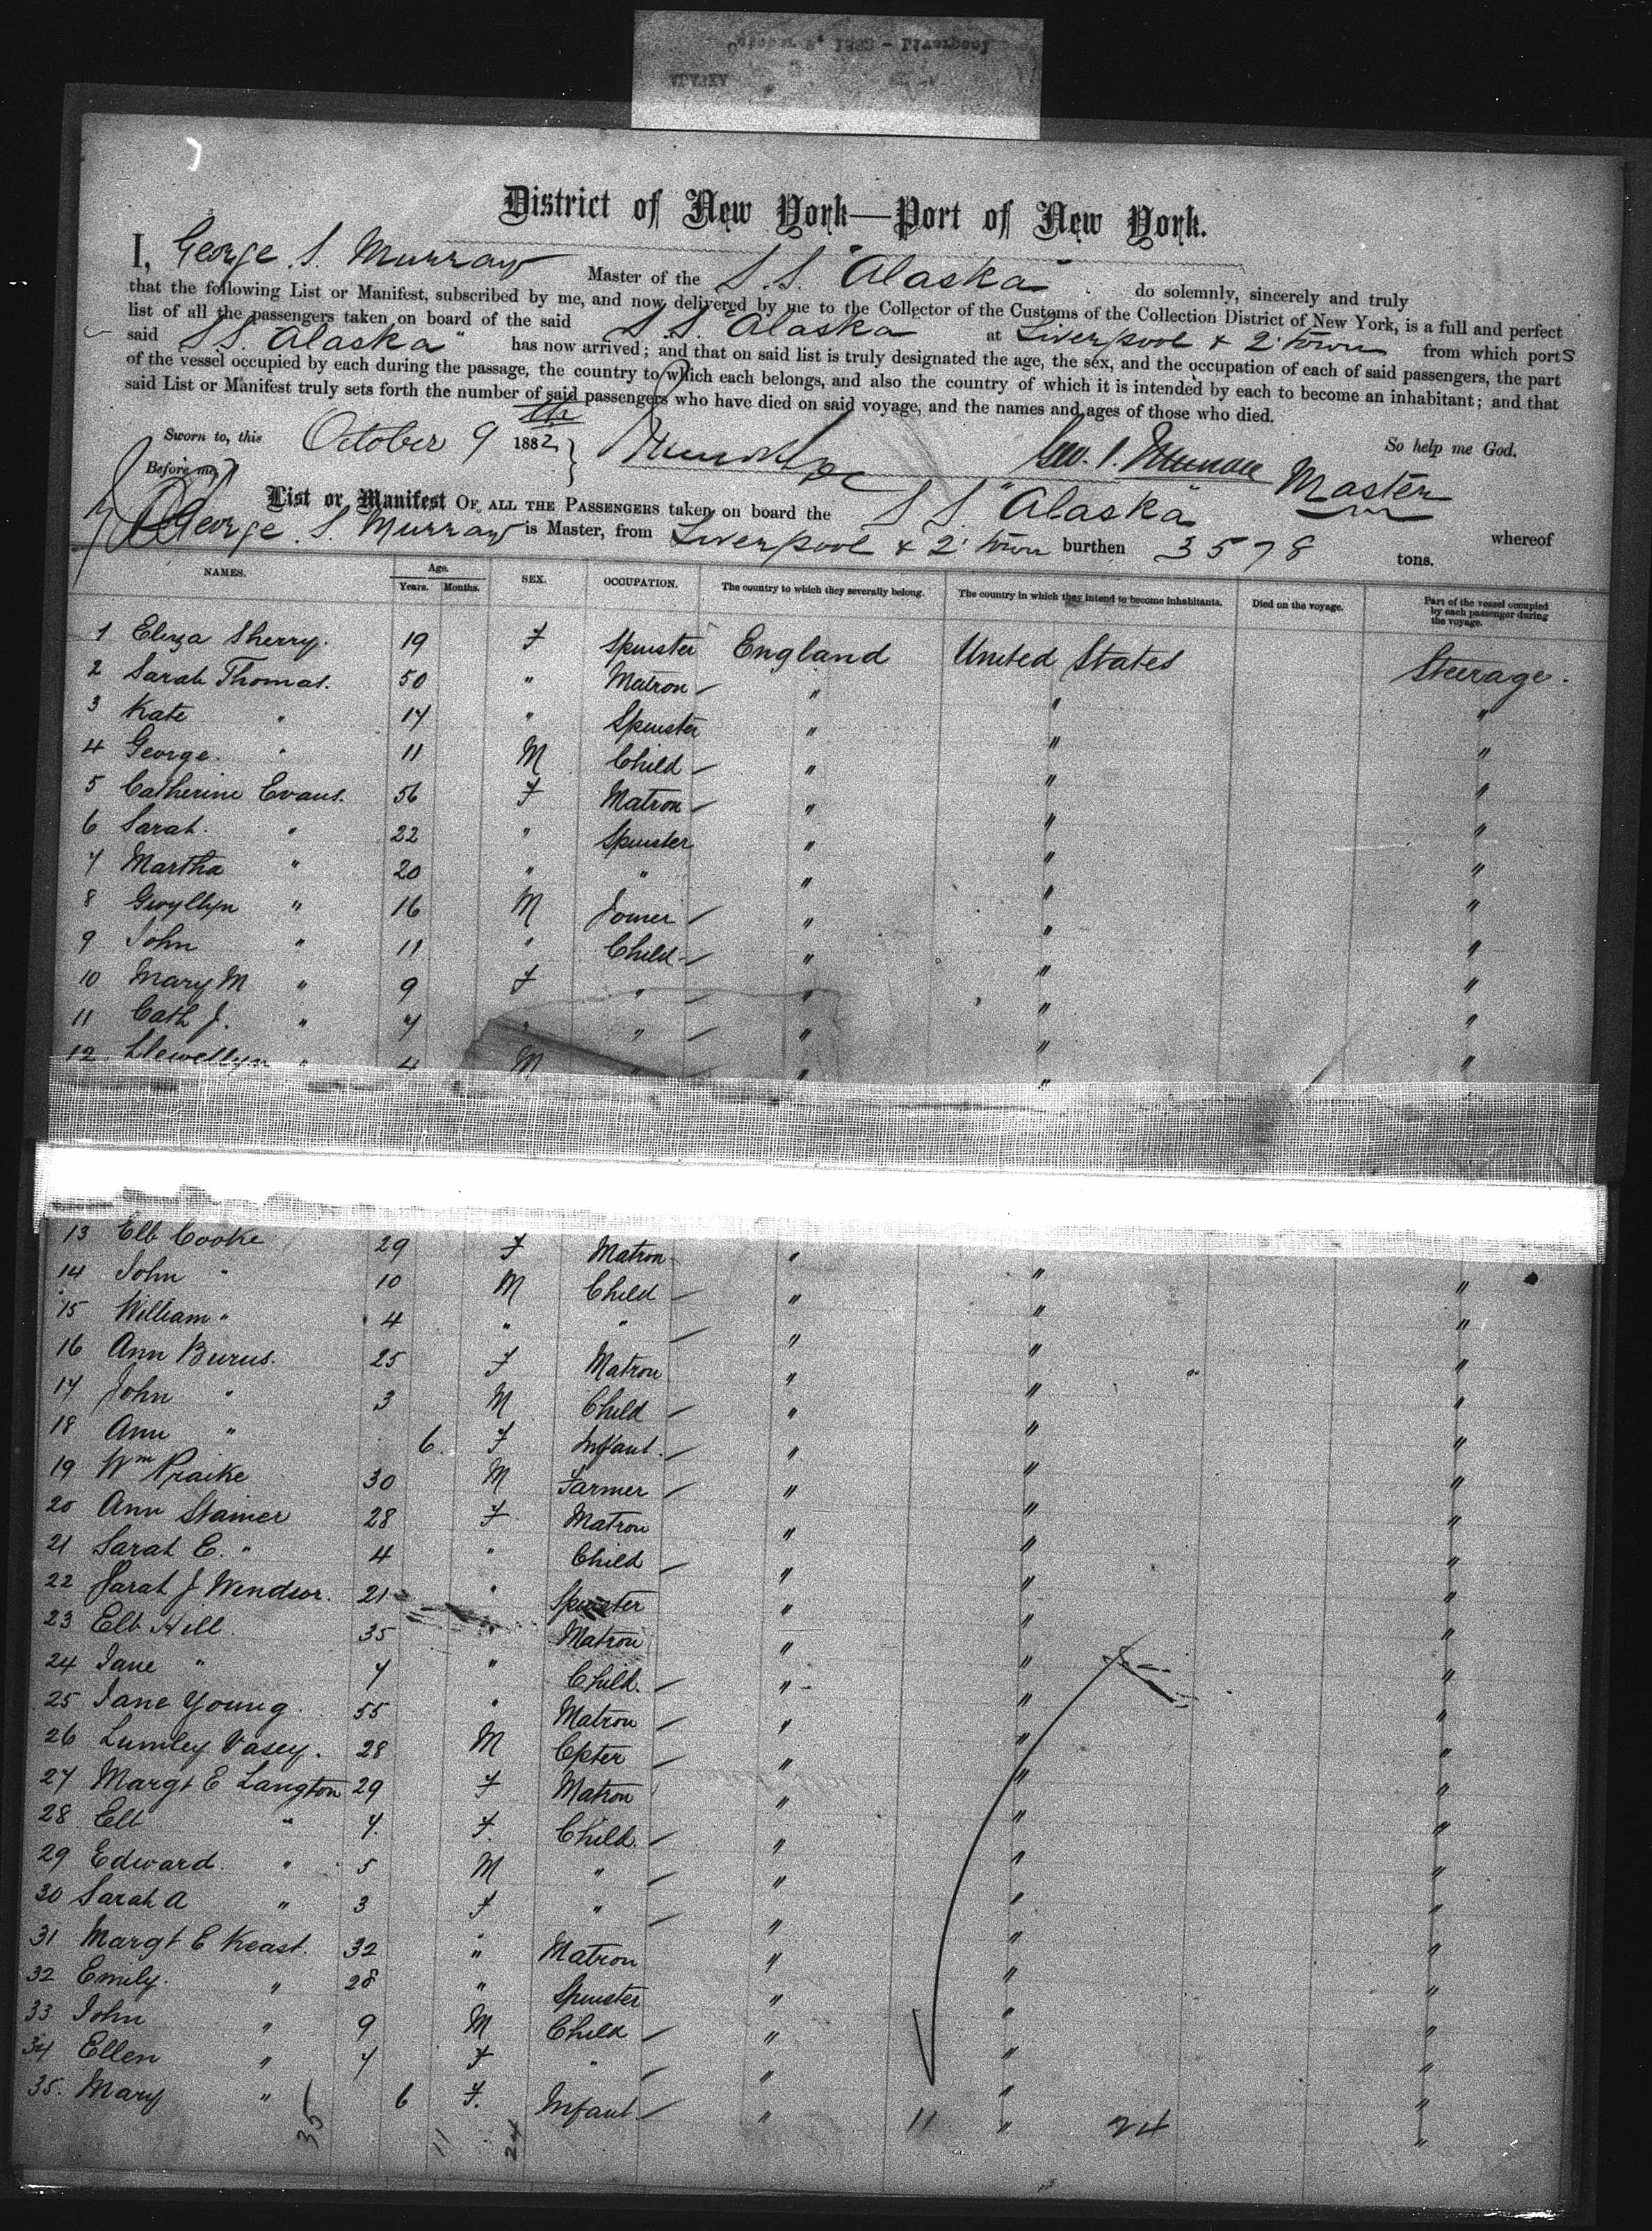 October 9, 1882 - Liverpool
ALASKA
District of New York—Port of New York.
I, George. S. Murray Master of the S.S. "Alaska" do solemnly, sincerely and truly
that the following List or Manifest, subscribed by me, and now delivered by me to the Collector of the Customs of the Collection District of New York, is a full and perfect
list of all the passengers taken on board of the said S.S. "Alaska at Liverpool & 2.town from which ports
said S.S. "Alaska" has now arrived; and that on said list is truly designated the age, the sex, and the occupation of each of said passengers, the part
of the vessel occupied by each during the passage, the country to which each belongs, and also the country of which it is intended by each to become an inhabitant; and that
said List or Manifest truly sets forth the number of said passengers who have died on said voyage, and the names and ages of those who died.
Sworn to, this October 9th 1882 Geo. S. Murray Master So help me God.
Before me,
List or Manifest OF ALL THE PASSENGERS taken on board the S S "Alaska" whereof
George. S. Murray is Master, from Liverpool & 2.town burthen 3578 tons.
NAMES. Age. Years. Months. SEX. OCCUPATION. The country to which they severally belong. The country in which they intend to become inhabitants. Died on the voyage. Part of the vessel occupied by each passenger during the voyage.
1 Eliza Sherry. 19 F Spinster England United States Steerage.
2 Sarah Thomas. 50 " Matron " " "
3 Kate " 14 " Spinster " " "
4 George. " 11 M Child " " "
5 Catherine Evans. 56 F Matron " " "
6 Sarah. " 22 " Spinster " " "
7 Martha " 20 " " " " "
8 Gwyllyn " 16 M Joiner " " "
9 John " 11 " Child " " "
10 Mary M " 9 F " " " "
11 Cath J. " 7 " " " " "
12 Llewellyn " 4 M " " " "
13 Elb Cooke 29 F Matron "
14 John " 10 M Child " " "
15 William " 4 " " " " "
16 Ann Burns. 25 F Matron " " "
17 John " 3 M Child " " "
18 Ann " 6. F Infant. " " "
19 Wm Praike 30 M Farmer " " "
20 Ann Stainer 28 F Matron " " "
21 Sarah E. " 4 " Child " " "
22 Sarah J Windsor. 21 " Spinster " " "
23 Elb Hill. 35 " Matron " " "
24 Jane " 7 " Child. " " "
25 Jane Young. 55 " Matron " " "
26 Lumley Vasey. 28 M Cpter " " "
27 Margt E Langton 29 F Matron " " "
28 Elb " 7. F. Child. " " "
29 Edward. " 5 M " " " "
30 Sarah A " 3 F " " " "
31 Margt E Keast. 32 " Matron " " "
32 Emily. " 28 " Spinster " " "
33 John " 9 M Child " " "
34 Ellen " 7 F " " " "
35. Mary " 6 F. Infant " " "
35 11 24 11 24